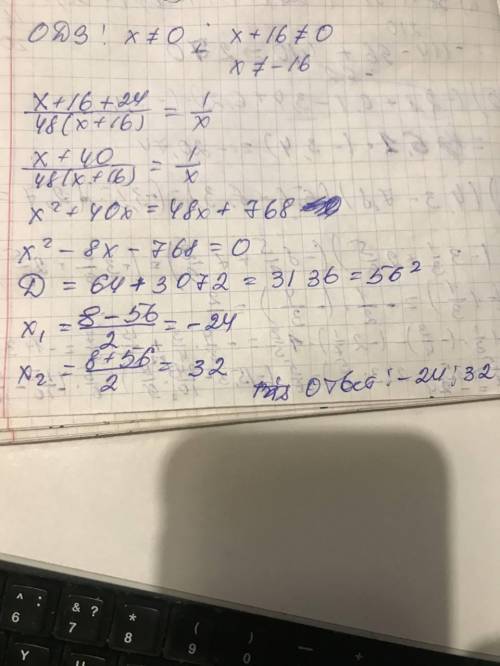 ОДЗ: x ≠ 0; x + 16 ≠ 0
x ≠ -16
x+16+24 / 48(x+16) = 1/x
x+40 / 48(x+16) = 1/x
x² + 40x = 48x + 768
x² - 8x - 768 = 0
Д = 64 + 3072 = 3136 = 56²
x₁ = 8-56 / 2 = -24
x₂ = 8+56 / 2 = 32
Ответ: -24; 32
^ : 6
& ? 7
* 8
( 9
) 0
Y
U